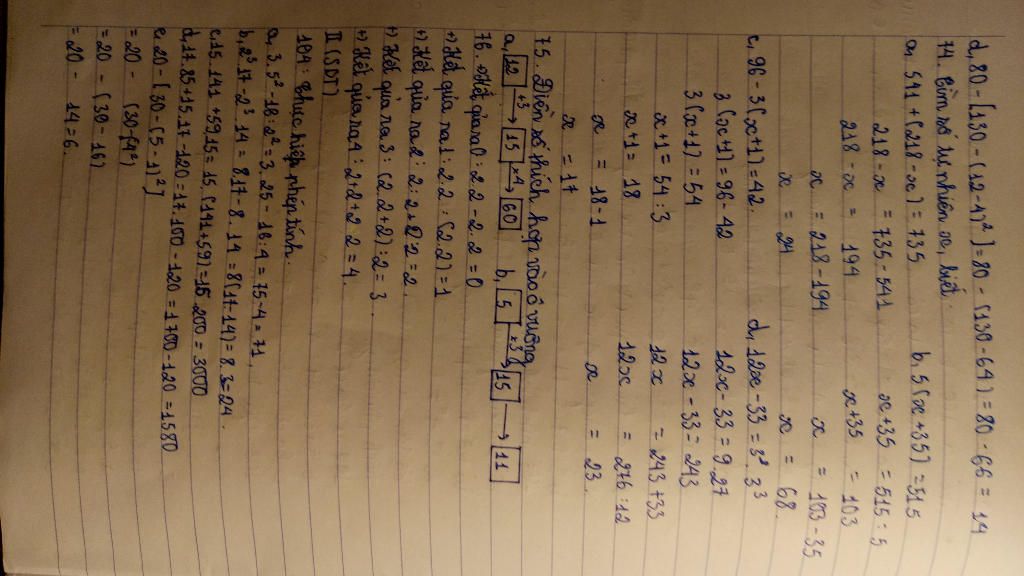 d, 80 - [130 - (12-4)²] = 80 - (130 - 64) = 80 - 66 = 14
74. Tìm số tự nhiên x, biết.
a, 541 + (218 - x) = 735 b, 5(x+35) = 515
218 - x = 735 - 541 x+35 = 515 : 5
218 - x = 194 x+35 = 103
x = 218 - 194 x = 103 - 35
x = 24 x = 68.
c, 96 - 3(x+1) = 42. d, 12x - 33 = 3². 3³
3(x+1) = 96 - 42 12x - 33 = 9.27
3(x+1) = 54 12x - 33 = 243
x+1 = 54 : 3 12x = 243 + 33
x+1 = 18 12x = 276 : 12
x = 18 - 1 x = 23.
x = 17
75. Điền số thích hợp vào ô vuông
a, 12 +3 → 15 x4 → 60 b, 5 x3 → 15 → 11
76. Kết quả ra 0 : 2.2 - 2.2 = 0
+) Kết quả ra 1 : 2.2 : (2.2) = 1
+) Kết quả ra 2 : 2:2+2:2 = 2.
+) Kết quả ra 3 : (2+2+2):2 = 3.
+) Kết quả ra 4 : 2+2+2-2 = 4.
II (SBT)
104 : Thực hiện phép tính.
a, 3.5² - 16:2² = 3.25 - 16:4 = 75 - 4 = 71.
b, 2³.17 - 2³.14 = 8.17 - 8.14 = 8(17-14) = 8.3 = 24.
c, 15.141 + 59.15 = 15.(141+59) = 15.200 = 3000
d, 17.85 + 15.17 - 120 = 17.100 - 120 = 1700 - 120 = 1580
e, 20 - [30 - (5-1)²]
= 20 - (30 - 4²)
= 20 - (30 - 16)
= 20 - 14 = 6.